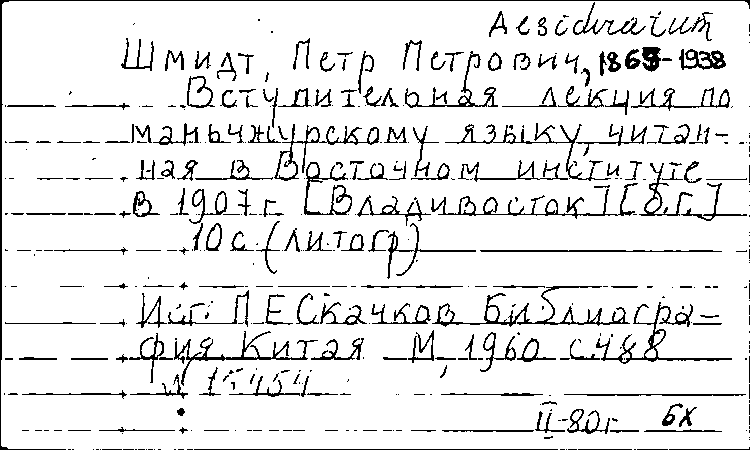 Aesidiratum
Шмидт, Петр Петрович, 1869-1938
Вступительная лекция по
маньчжурскому языку, читан-
ная в Восточном институте
в 1907 г. [Владивосток] [б.г.]
10 с (литогр)
Ист: П Е Скачков Библиогра-
фия Китая М, 1960 с. 488
N 15454
II-80 г. БХ